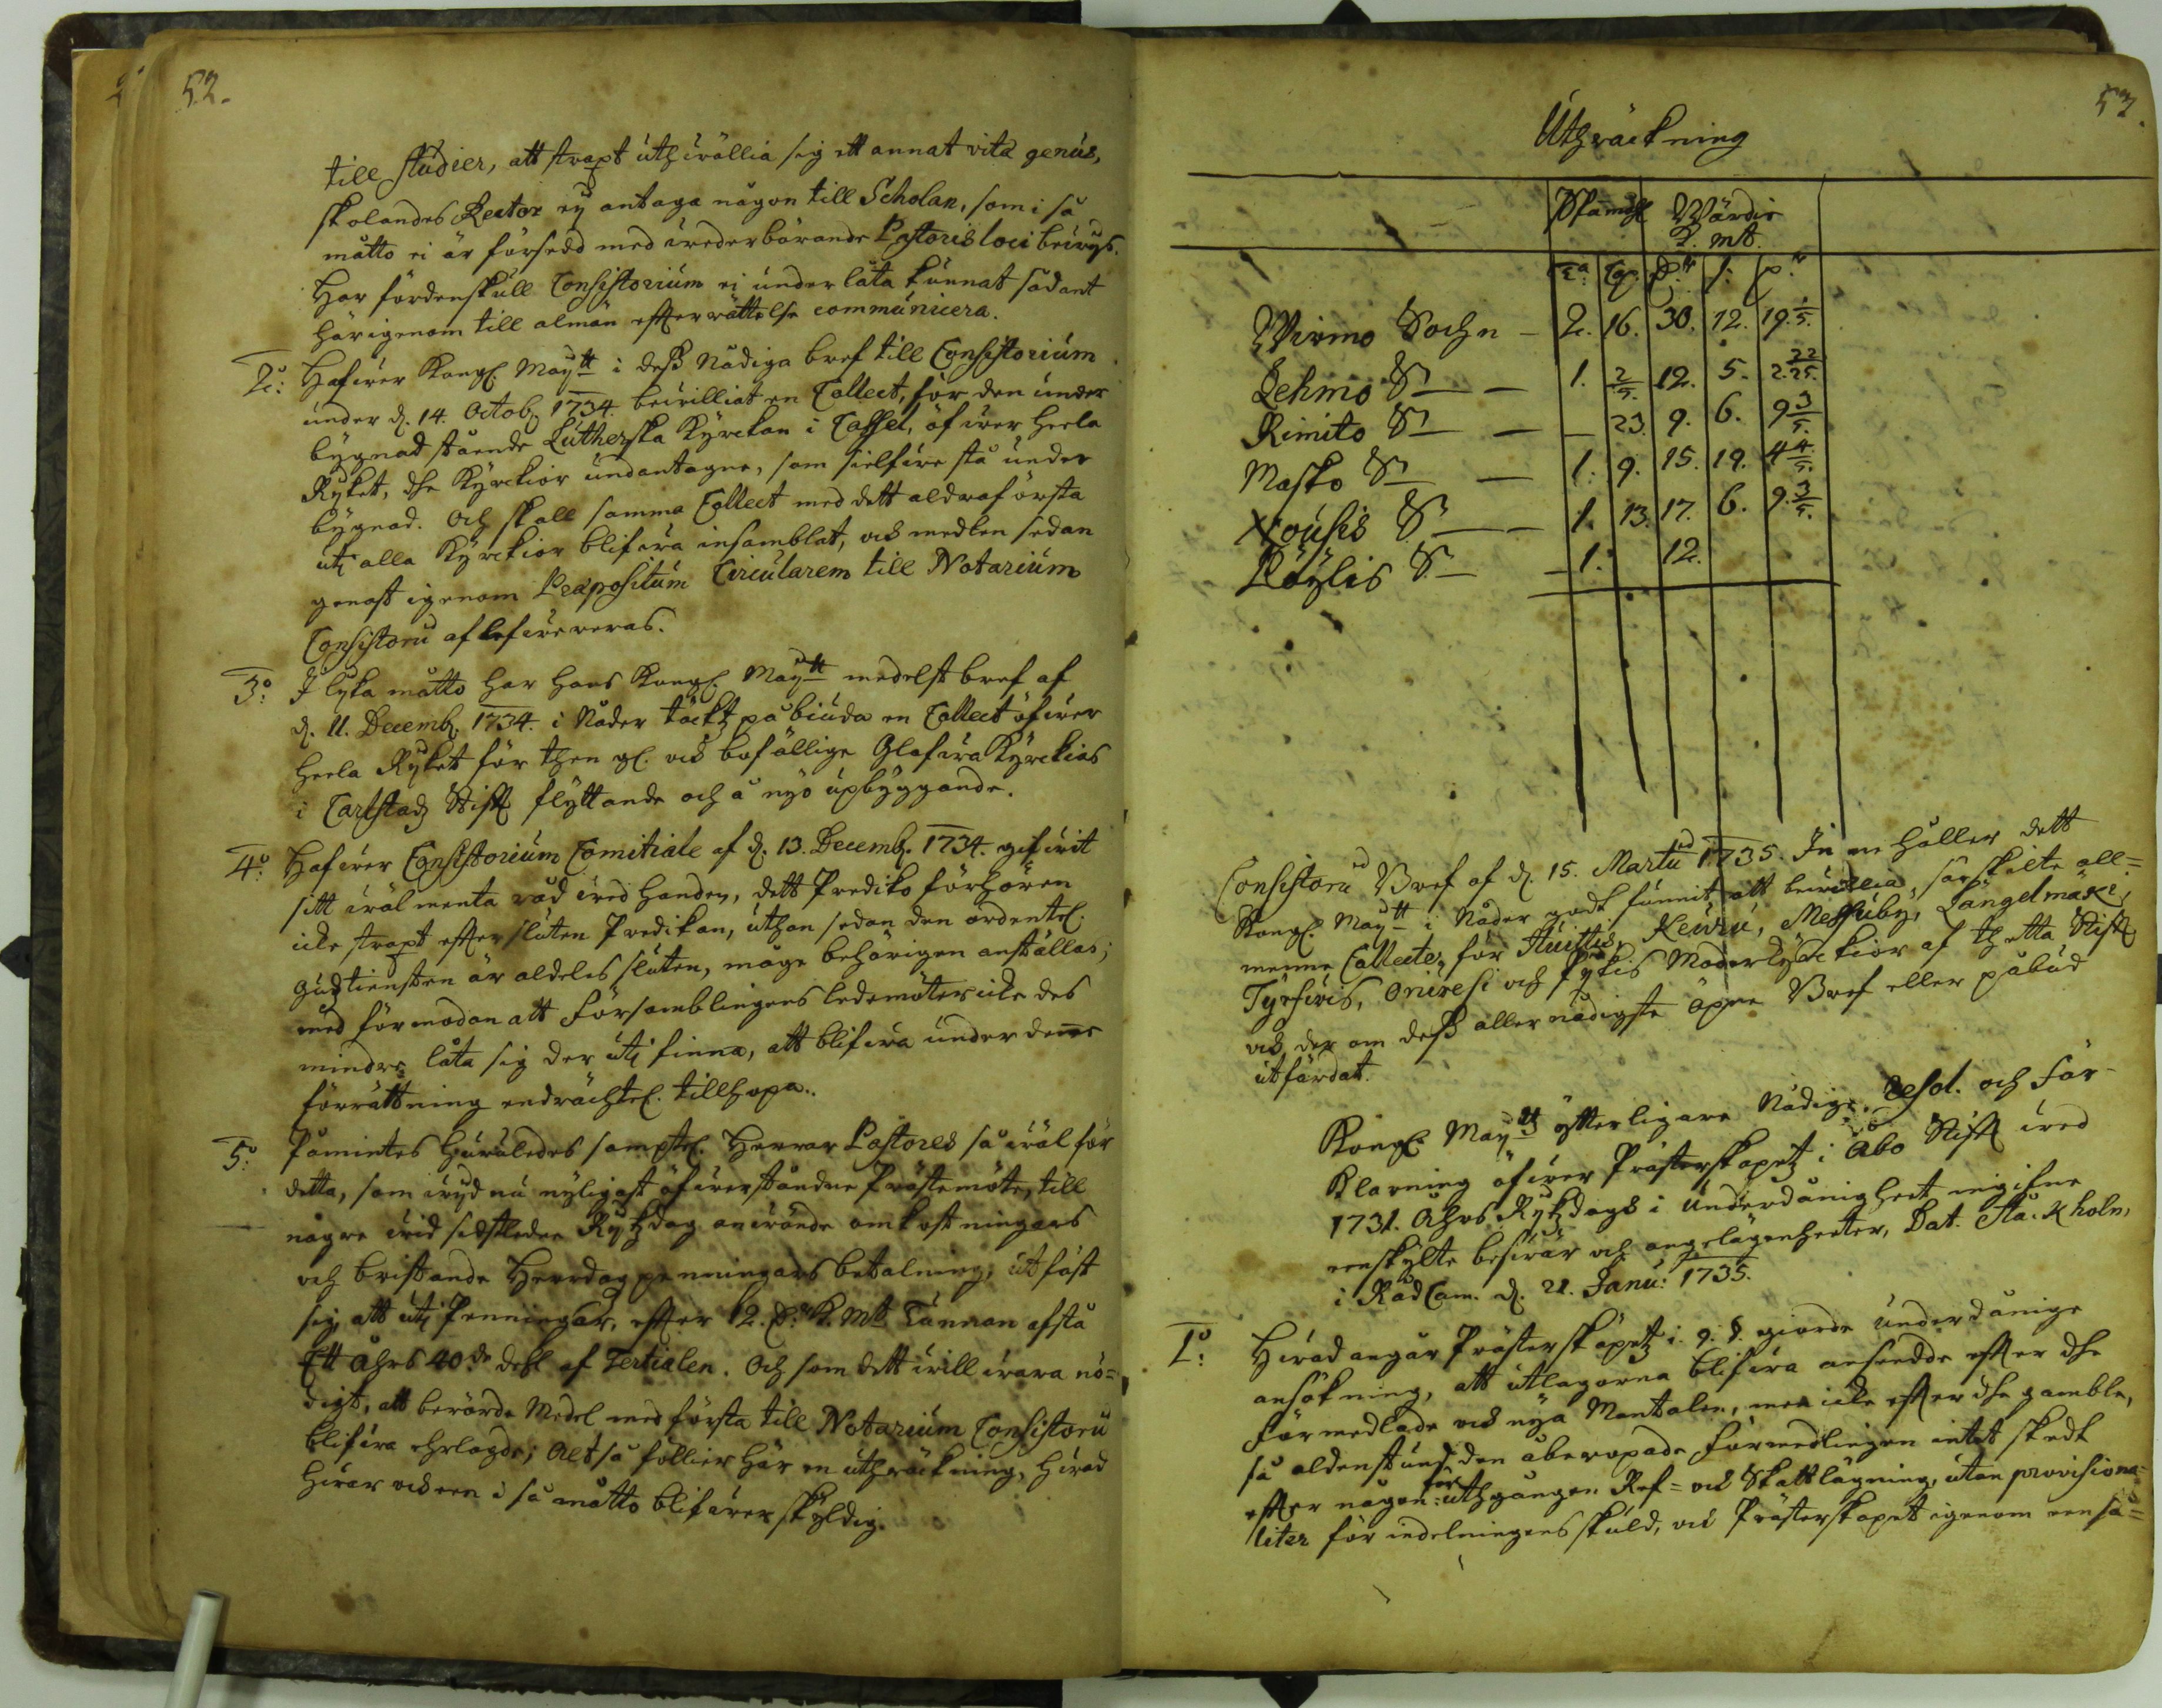 52.
till studier, att straxt uthwällia sig ett annat vitæ genus,
skolandes Rector ey antaga någon till Scholan, som i så
måtto ei är försedd med wederbörande Pastoris loci bewys.
Har fördenskull Consistorium ei underlåta kunnat sådant
härigenom till almän efterrättelse communicera.
2:o Hafwer Kongl. Maytt i dess Nådiga bref till Consistorium
under d. 14. Octob. 1734. bewilliat en Collect, för den under
bygnad stående Lutherska Kyrckan i Cassel, öfwer heela
Ryket, dhe Kyrckior undantagne, som sielfwe stå under
bygnad. Och skall samma Collect med dett aldraförsta
uti alla Kyrckior blifwa insamblat, och medlen sedan
genast igenom Præpositum Circularem till Notarium
Consistorii aflefwereras.
3:o I lyka måtto har Hans Kongl. Maytt medelst bref af
d. 11. Decemb. 1734. i Nåder täckts påbiuda en Collect öfwer
heela Ryket för then gl. och bofällige Glafwa Kyrckias
i Carlstadz Stifft flyttande och å nyo upbyggande.
4:o Hafwer Consistorium Comitiale af d. 13. Decemb. 1734. gifwit
sitt wälmenta råd wed handen, dett Prediko förhören
icke straxt effter sluten Predikan, uthan sedan den ordentel.
Gudztiensten är aldeles sluten, måge behörigen anställas;
med förmodan att Församblingens ledamöter icke des
mindre låta sig der uti finna, att blifwa under denne
förrättning endrächtel. tillhopa.
5:o Påmintes huruledes samptel. Herrar Pastores så wäl för
detta, som wyd nu nyligast öfwerståndne Prästemöte, till
någre wid sidstledne Rykzdag anwände omkostningars
och bristande Herredagzpenningars betalning, utfäst
sig att uti Penningar, effter 12. D:r K. Mt Tunnan afstå
Ett Åhrs 40:de dehl af Tertialen. Och som dett will wara nö=
digt, att berörde Medel med första till Notarium Consistorii
blifwa ehrlagde; Altså föllier här en uthräckning, hwad
hwar och een i så måtto blifwer skyldig.
53.
Uthräckning
Spannmål Wärde
K. mt.
T:a Cp. D:r s. p:r
Wirmo Sochn — 2. 16. 30. 12. 19. 1/5.
Lehmo S— — 1. 2/5. 12. 5. 2. 22/25.
Rimito S— — — 23. 9. 6. 9 3/5.
Masko S— — 1. 9. 15. 19. 4 4/5.
Nousis S— — 1. 13. 17. 6. 9. 3/5.
Pöylis S— — 1. 12.
Consistorii Bref af d. 15. Martii 1735. In nehåller dett
Kongl. Maytt i Nåder godt funnit att bewillia, särskilte all=
menne Collecter för Huittis, Keuru, Messuby, Längelmäki,
Tyrfwis, Oriwesi och Pykis Moderkyrckior af thetta Stifft
och der om dess aller nådigste Öpne Bref eller påbud
utfärdat.
Kongl. Maytz ytterligare Nådige Resol. och För-
klarning öfwer Prästerskapetz i Åbo Stifft wed
1731. Åhrs Rykzdags i Underdånigheet ingifne
enskylte beswär och angelägenheeter, Dat. Stockholm,
i Råd Cam. d. 21. Janu: 1735.
1:o Hwad angår Prästerskapetz i 9. §. giorde underdånige
ansökning, att utlagorna blifwa ansedde effter dhe
förmedlade och nya Mantalen, men icke effter dhe gamble,
så aldenstund den åberopade förmedlingen intet skedt
effter någon för uthgången Ref= och Skattlägning, utan provisiona=
liter för indelningens skuld, och Prästerskapet igenom een så=